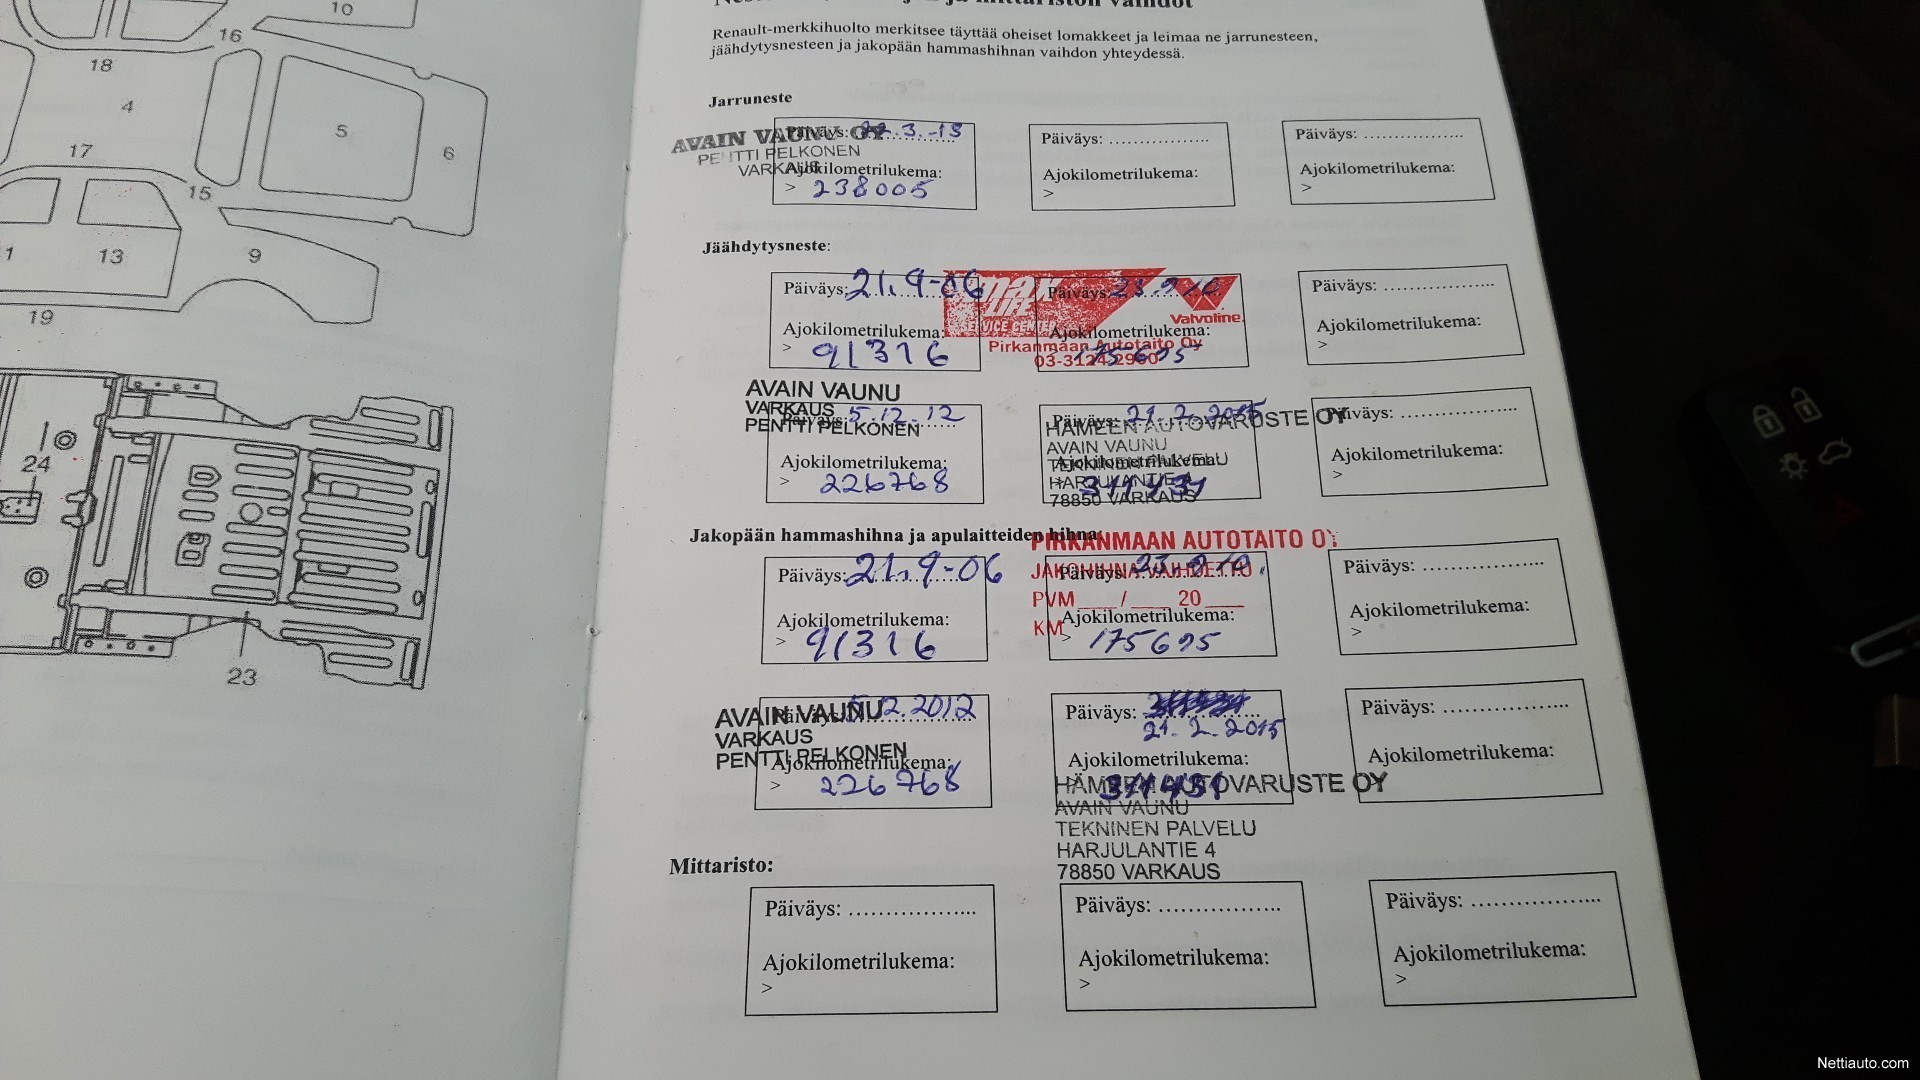 10
16
18
4
5
6
17
15
1
13
9
19
24
23
Renault-merkkihuolto merkitsee täyttää oheiset lomakkeet ja leimaa ne jarrunesteen,
jäähdytysnesteen ja jakopään hammashihnan vaihdon yhteydessä.
Jarruneste
AVAIN VAUNU OY
PENTTI PELKONEN
VARKAUS
Päiväys: 3.-13
Ajokilometrilukema:
> 238005
Päiväys: ..................
Ajokilometrilukema:
>
Päiväys: ..................
Ajokilometrilukema:
>
Jäähdytysneste:
Päiväys: 21.9-06
Ajokilometrilukema:
> 91316
max
LIFE
SERVICE CENTER
Valvoline
Pirkanmaan Autotaito Oy
Päiväys: 23.9/10
Ajokilometrilukema:
175695
Päiväys: ..................
Ajokilometrilukema:
>
AVAIN VAUNU
VARKAUS
PENTTI PELKONEN
Päiväys: 5.12.12
Ajokilometrilukema:
> 226768
Päiväys: 21.2.2015
HÄMEEN AUTOVARUSTE OY
AVAIN VAUNU
TEKNINEN PALVELU
Ajokilometrilukema:
HARJULANTIE
311431
78850 VARKAUS
Päiväys: ..................
Ajokilometrilukema:
>
Jakopään hammashihna ja apulaitteiden hihna:
PIRKANMAAN AUTOTAITO OY
JAKOHIHNA VAIHDETTU
PVM ___ / ___ 20 ___
KM
Päiväys: 21.9-06
Ajokilometrilukema:
> 91316
Päiväys: 23.9/10.
Ajokilometrilukema:
> 175695
Päiväys: ..................
Ajokilometrilukema:
>
AVAIN VAUNU
VARKAUS
PENTTI PELKONEN
Päiväys: 5.12.2012
Ajokilometrilukema:
> 226768
Päiväys:
21.2.2015
Ajokilometrilukema:
311431
HÄMEEN AUTOVARUSTE OY
AVAIN VAUNU
TEKNINEN PALVELU
HARJULANTIE 4
78850 VARKAUS
Päiväys: ..................
Ajokilometrilukema:
>
Mittaristo:
Päiväys: ..................
Ajokilometrilukema:
>
Päiväys: ..................
Ajokilometrilukema:
>
Päiväys: ..................
Ajokilometrilukema:
>
Nettiauto.com